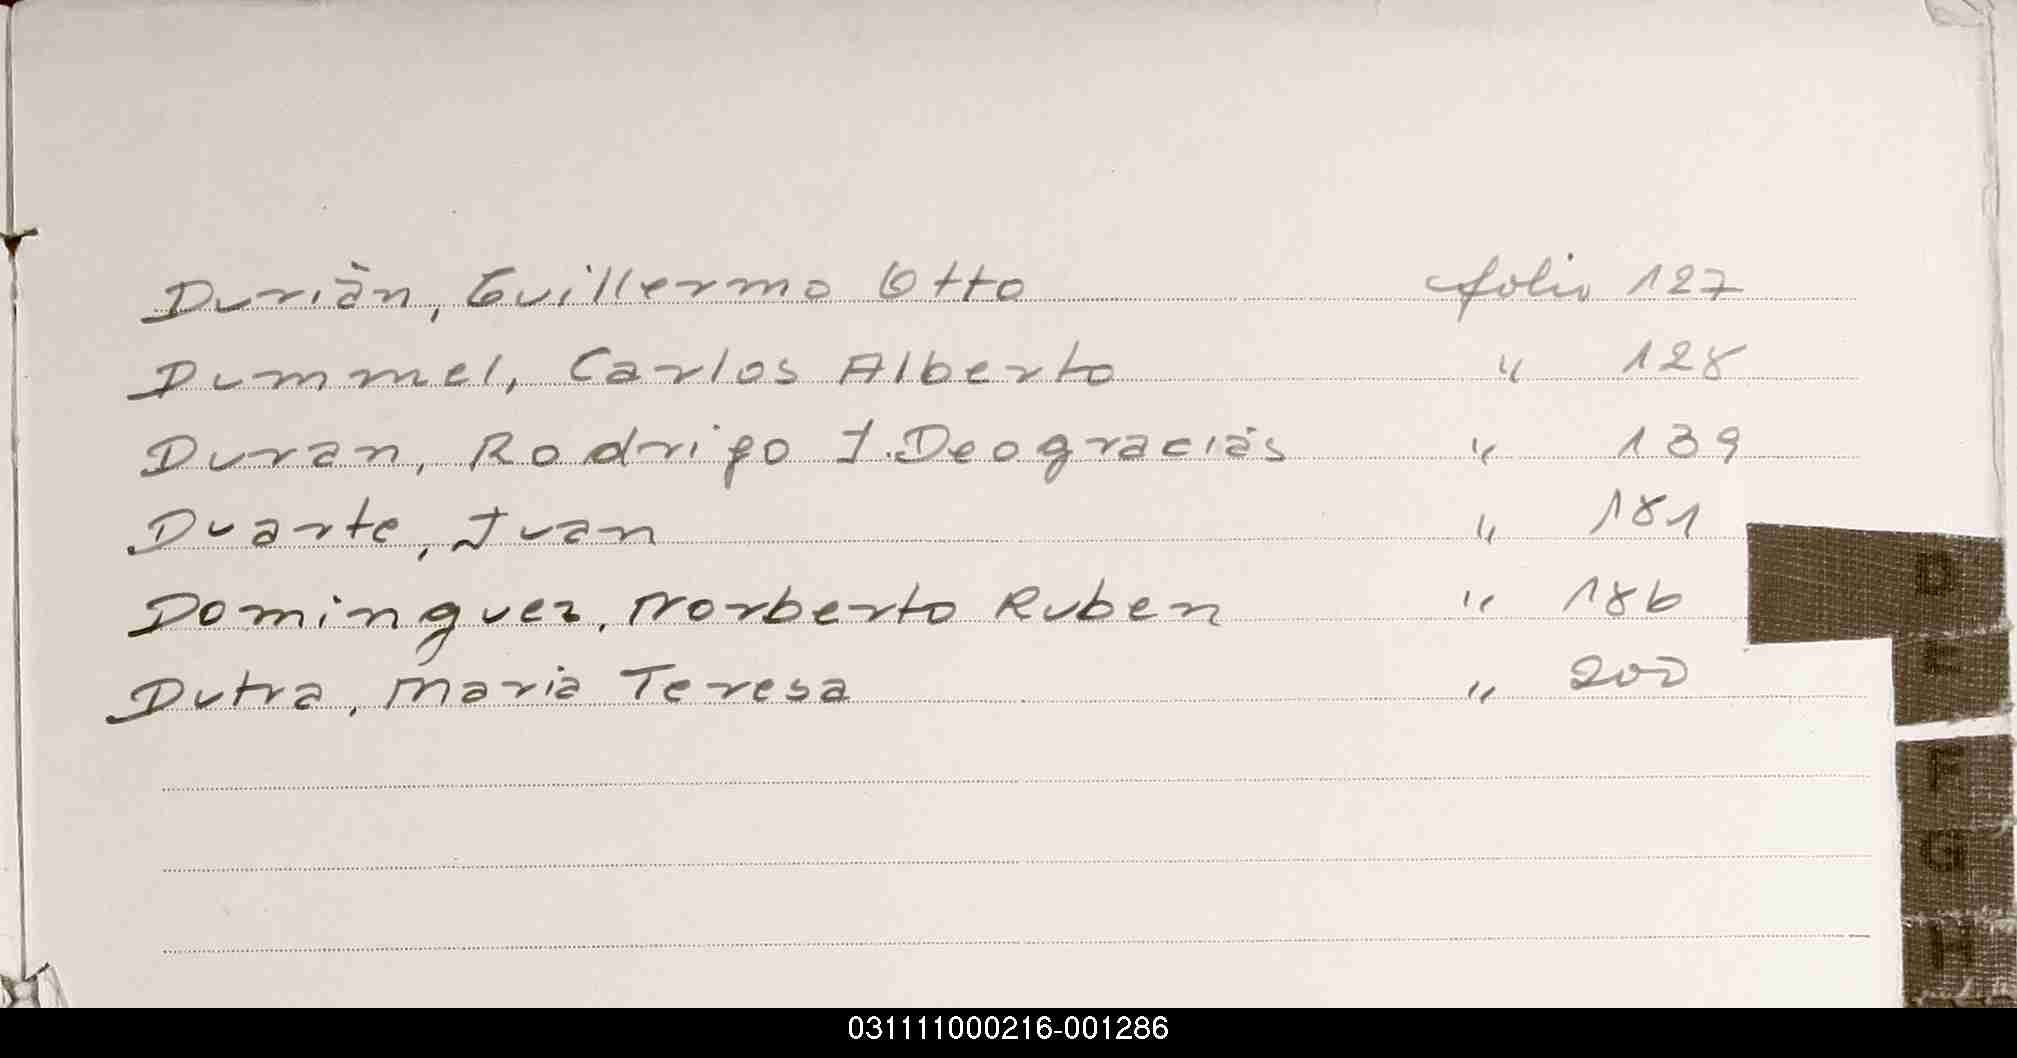 Duriàn, Guillermo Otto folio 127
Dummel, Carlos Alberto " 128
Duran, Rodrigo J. Deograciàs " 139
Duarte, Juan " 181
Dominguez, Norberto Ruben " 186
Dutra, Maria Teresa " 200
D
E
F
G
H
031111000216-001286